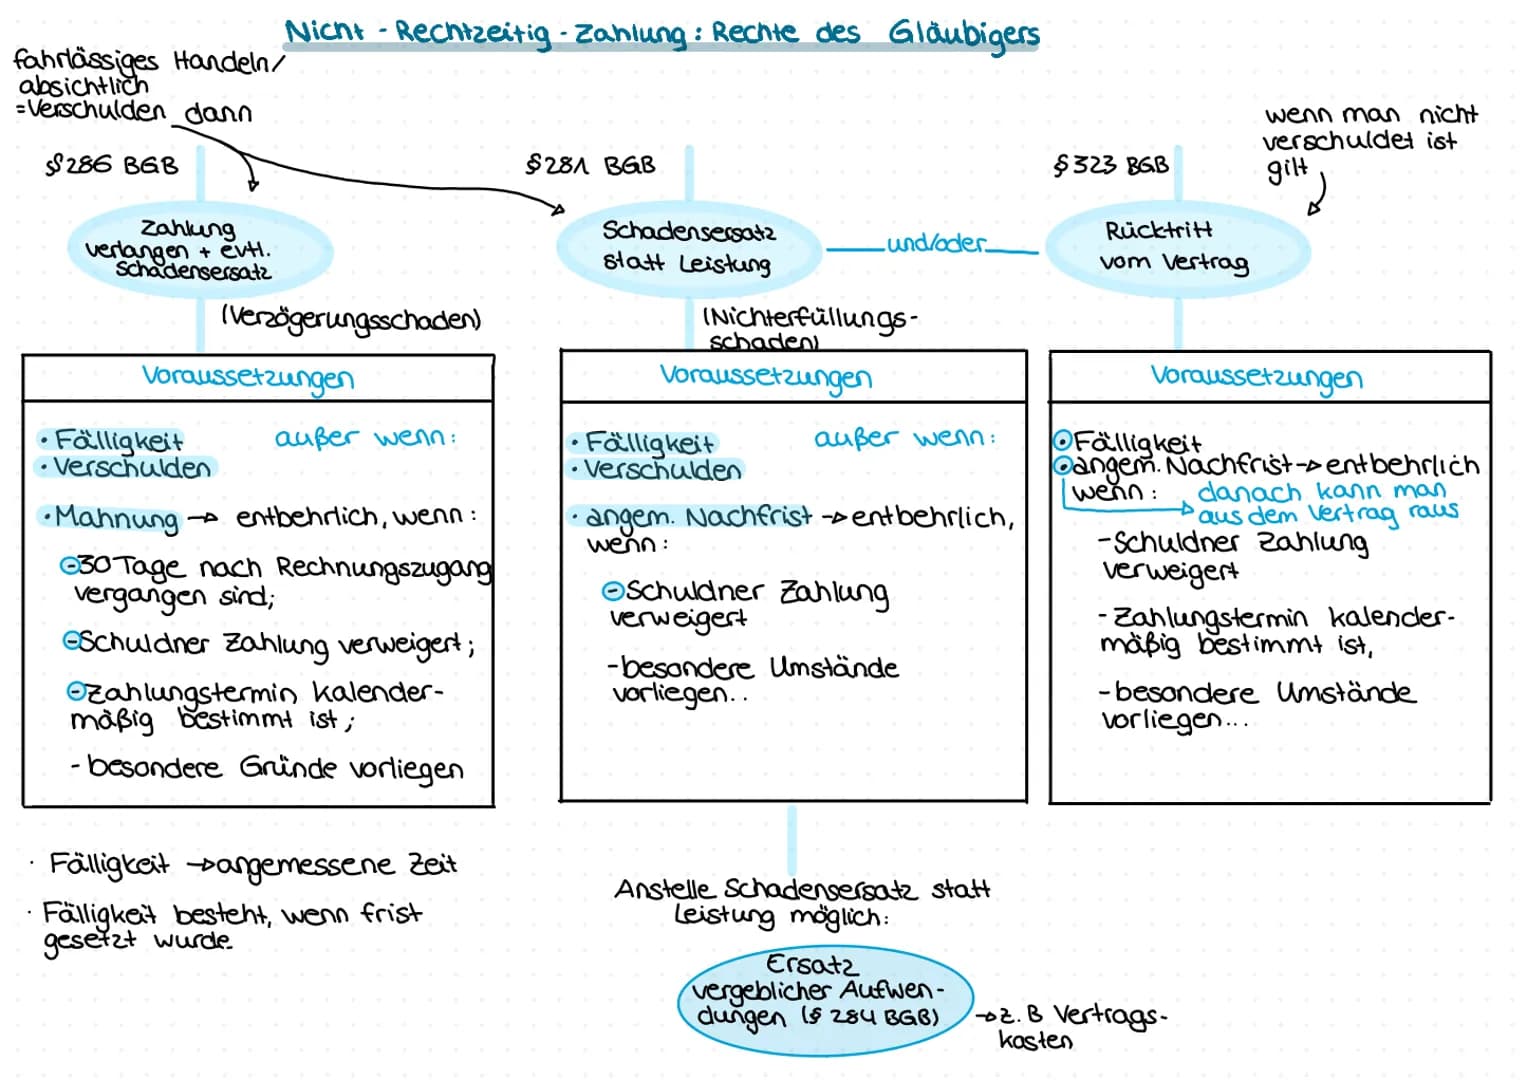 Nicht-Rechtzeitig-Zahlung: Rechte des Gläubigers
fahrlässiges Handeln/
absichtlich
=Verschulden dann
wenn man nicht
verschuldet ist
gilt
§286 BGB
Zahlung
verlangen + evtl.
Schadensersatz
(Verzögerungsschaden)
Voraussetzungen
• Fälligkeit außer wenn:
• Verschulden
• Mahnung → entbehrlich, wenn:
-30 Tage nach Rechnungszugang
vergangen sind;
-Schuldner Zahlung verweigert;
-Zahlungstermin kalender-
mäßig bestimmt ist;
- besondere Gründe vorliegen
· Fälligkeit → angemessene Zeit
· Fälligkeit besteht, wenn frist
gesetzt wurde.
§281 BGB
Schadensersatz
statt Leistung
und/oder
(Nichterfüllungs-
schaden)
Voraussetzungen
• Fälligkeit außer wenn:
• Verschulden
• angem. Nachfrist → entbehrlich,
wenn:
-Schuldner Zahlung
verweigert
-besondere Umstände
vorliegen..
Anstelle Schadensersatz statt
Leistung möglich:
Ersatz
vergeblicher Aufwen-
dungen (§ 284 BGB)
→z.B Vertrags-
kosten
§323 BGB
Rücktritt
vom Vertrag
Voraussetzungen
• Fälligkeit
• angem. Nachfrist → entbehrlich
wenn: danach kann man
aus dem Vertrag raus
-Schuldner Zahlung
verweigert
-Zahlungstermin kalender-
mäßig bestimmt ist,
-besondere Umstände
vorliegen...